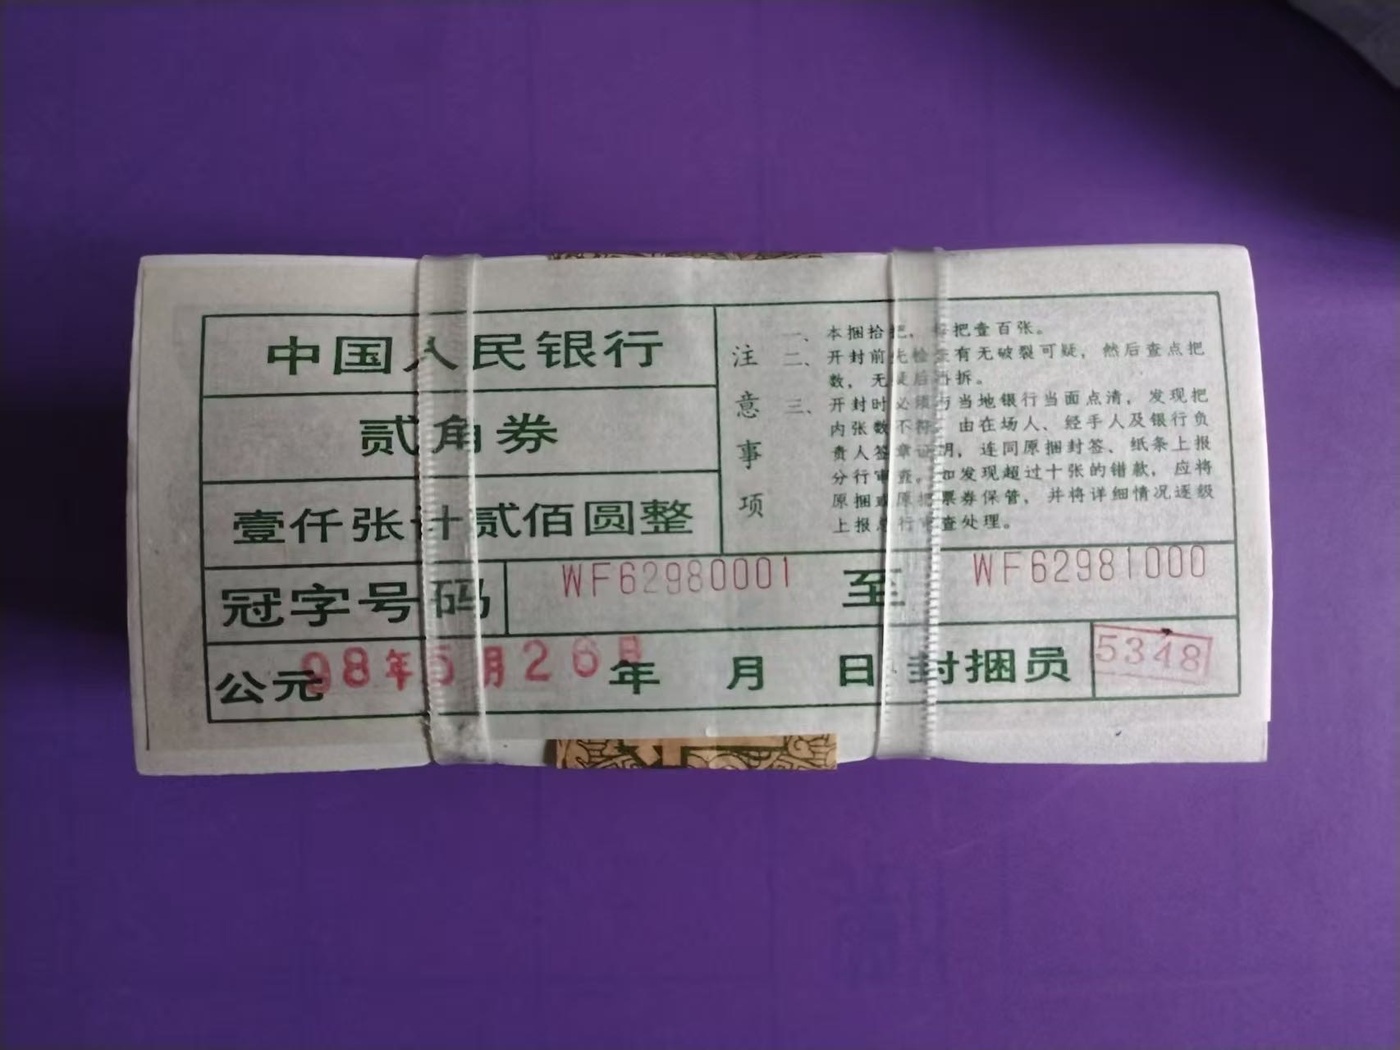 中国人民银行
贰角券
壹仟张计贰佰圆整
注意事项
一、本捆拾把，每把壹百张。
二、开封前先检查有无破裂可疑，然后查点把
数，无疑后再拆。
三、开封时必须与当地银行当面点清，发现把
内张数不符，由在场人、经手人及银行负
责人签章证明，连同原捆封签、纸条上报
分行审查。如发现超过十张的错款，应将
原捆或原把票券保管，并将详细情况逐级
上报总行审查处理。
冠字号码 WF62980001 至 WF62981000
公元 98年5月26日 年 月 日 封捆员 5348